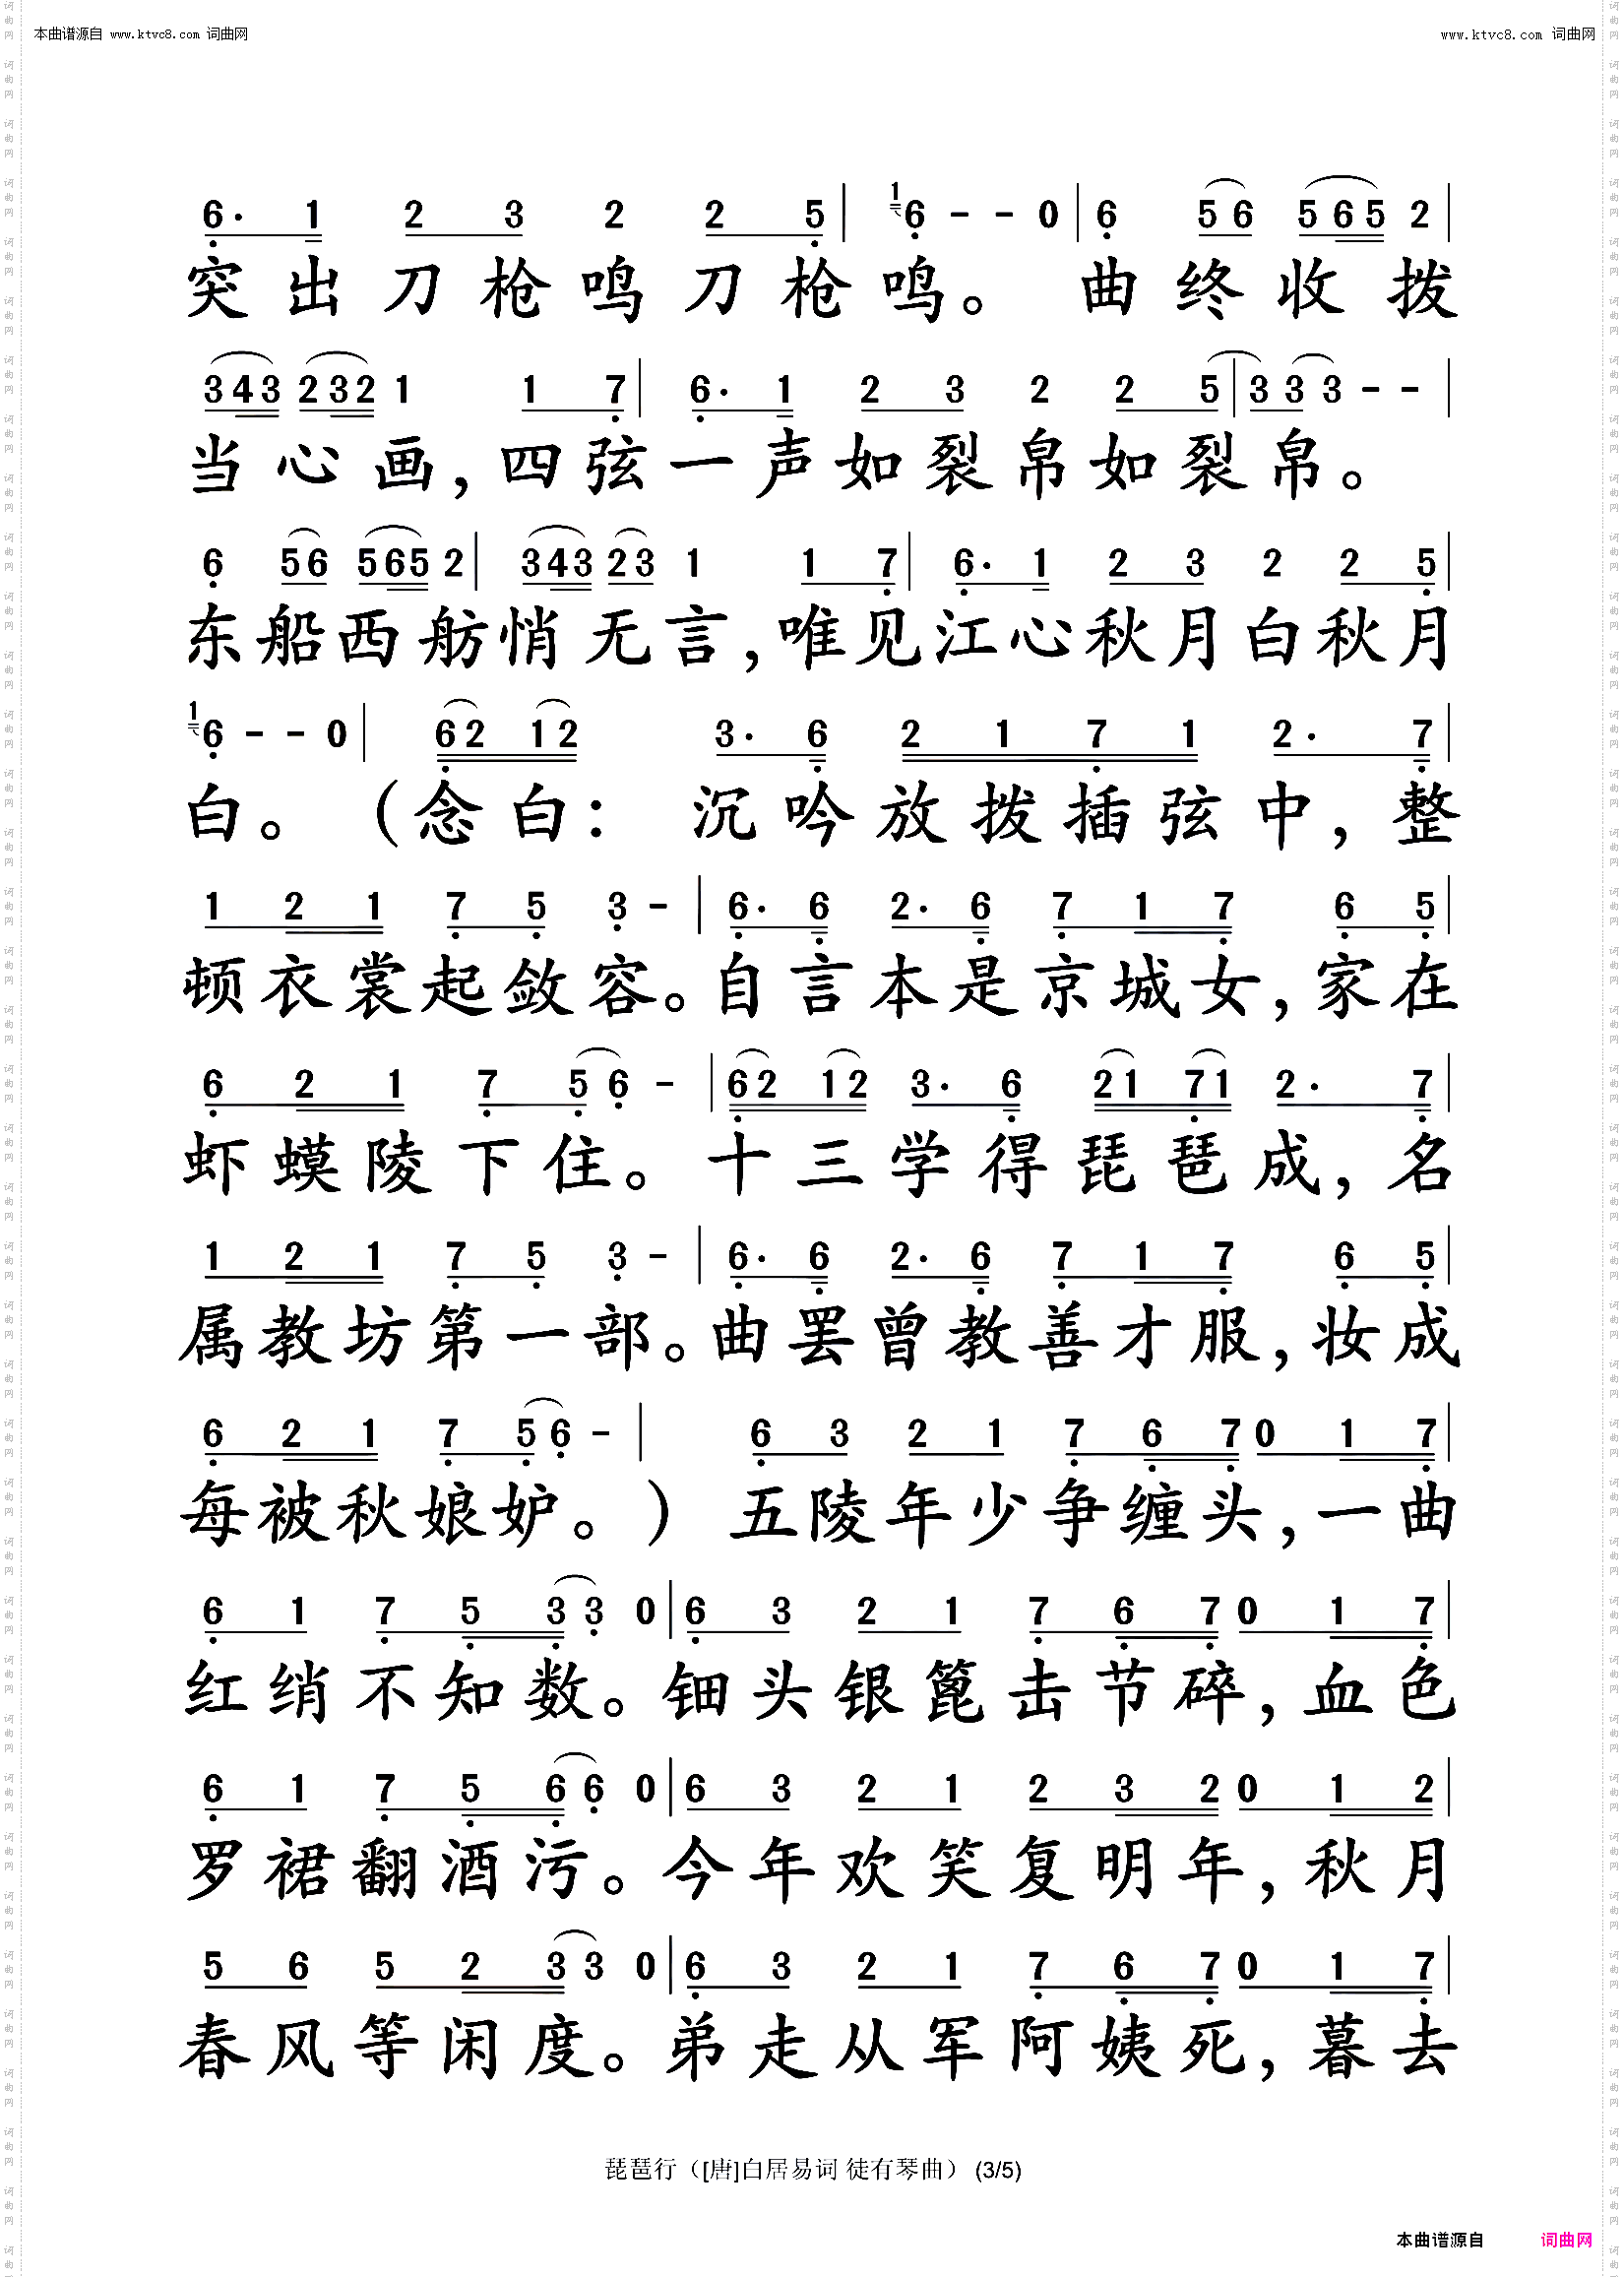 本曲谱源自 www.ktvc8.com 词曲网
www.ktvc8.com 词曲网
6. 1 2 3 2 2 5 | 1 6 - - 0 | 6 5 6 5 6 5 2 |
突出刀枪鸣刀枪鸣。曲终收拨
3 4 3 2 3 2 1 1 7 | 6. 1 2 3 2 2 5 | 3 3 3 - - |
当心画,四弦一声如裂帛如裂帛。
6 5 6 5 6 5 2 | 3 4 3 2 3 1 1 7 | 6. 1 2 3 2 2 5 |
东船西舫悄无言,唯见江心秋月白秋月
1 6 - - 0 | 6 2 1 2 3. 6 2 1 7 1 2. 7 |
白。(念白:沉吟放拨插弦中,整
1 2 1 7 5 3 - | 6. 6 2. 6 7 1 7 6 5 |
顿衣裳起敛容。自言本是京城女,家在
6 2 1 7 5 6 - | 6 2 1 2 3. 6 2 1 7 1 2. 7 |
虾蟆陵下住。十三学得琵琶成,名
1 2 1 7 5 3 - | 6. 6 2. 6 7 1 7 6 5 |
属教坊第一部。曲罢曾教善才服,妆成
6 2 1 7 5 6 - | 6 3 2 1 7 6 7 0 1 7 |
每被秋娘妒。)五陵年少争缠头,一曲
6 1 7 5 3 3 0 | 6 3 2 1 7 6 7 0 1 7 |
红绡不知数。钿头银篦击节碎,血色
6 1 7 5 6 6 0 | 6 3 2 1 2 3 2 0 1 2 |
罗裙翻酒污。今年欢笑复明年,秋月
5 6 5 2 3 3 0 | 6 3 2 1 7 6 7 0 1 7 |
春风等闲度。弟走从军阿姨死,暮去
琵琶行([唐]白居易词 徒有琴曲) (3/5)
本曲谱源自 词曲网